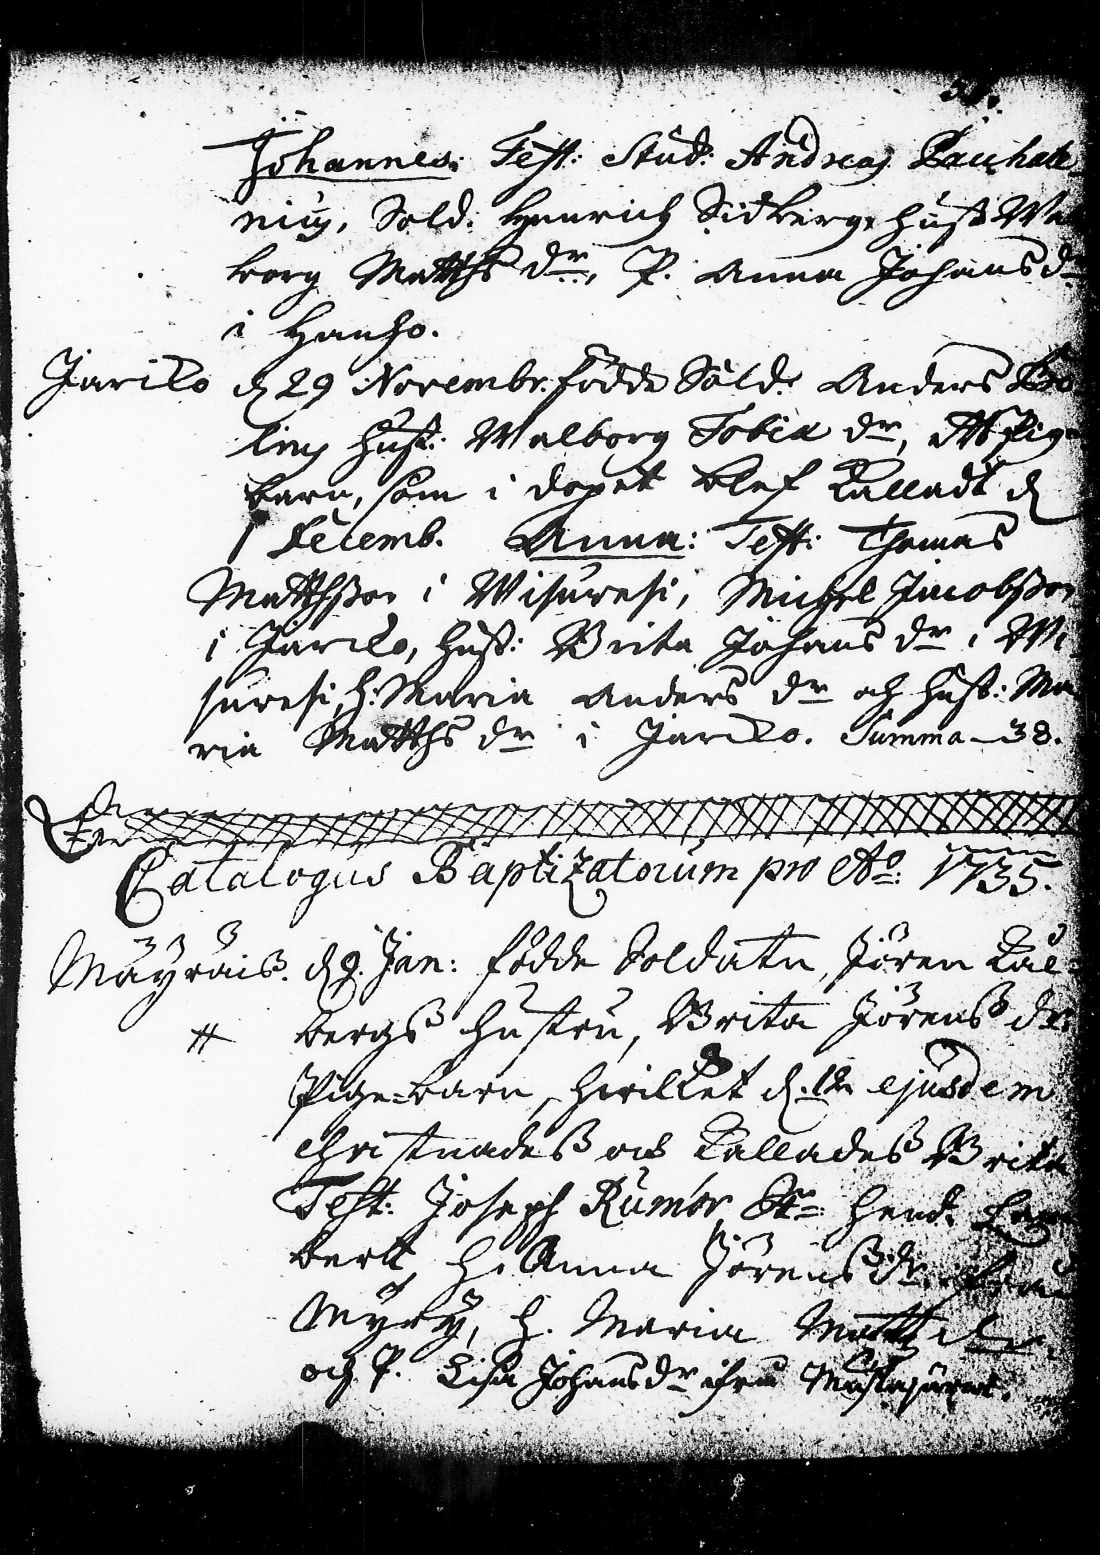 Johannes: Test: Stud: Andreas
nius, Sold: Henrich Sidberg, hust: Wal
borg Matths dr, P. Anna Johans dr
i Hanho.
Jarilo d 29 Novembr. födde Sold: Anders
lins hust: Walborg Tobiæ dr, ett Pige
barn, som i dopet blef kalladt d
1 Decemb. Anna: Test: Thomas
Matthsson i Wisuvesi, Michel Jacobsson
i Jarilo, hust: Brita Johans dr i Wi
suvesi, h: Maria Anders dr och hust: Ma
ria Matths dr i Jarilo. Summa 38.
Catalogus Baptizatorum pro Ao: 1735.
Mäyräis. d 9. Jan: födde Soldaten, Jören Kål
bergs hustru, Brita Jörens dr
Pige-barn, hvilket d. 12 ejusdem
christnades och kallades Brita
Test: Joseph Rumör, Hend:
bert, H. Anna Jörens dr, ifrån
Myry, h. Maria Matts dr
och P. Lisa Johans dr ifrån